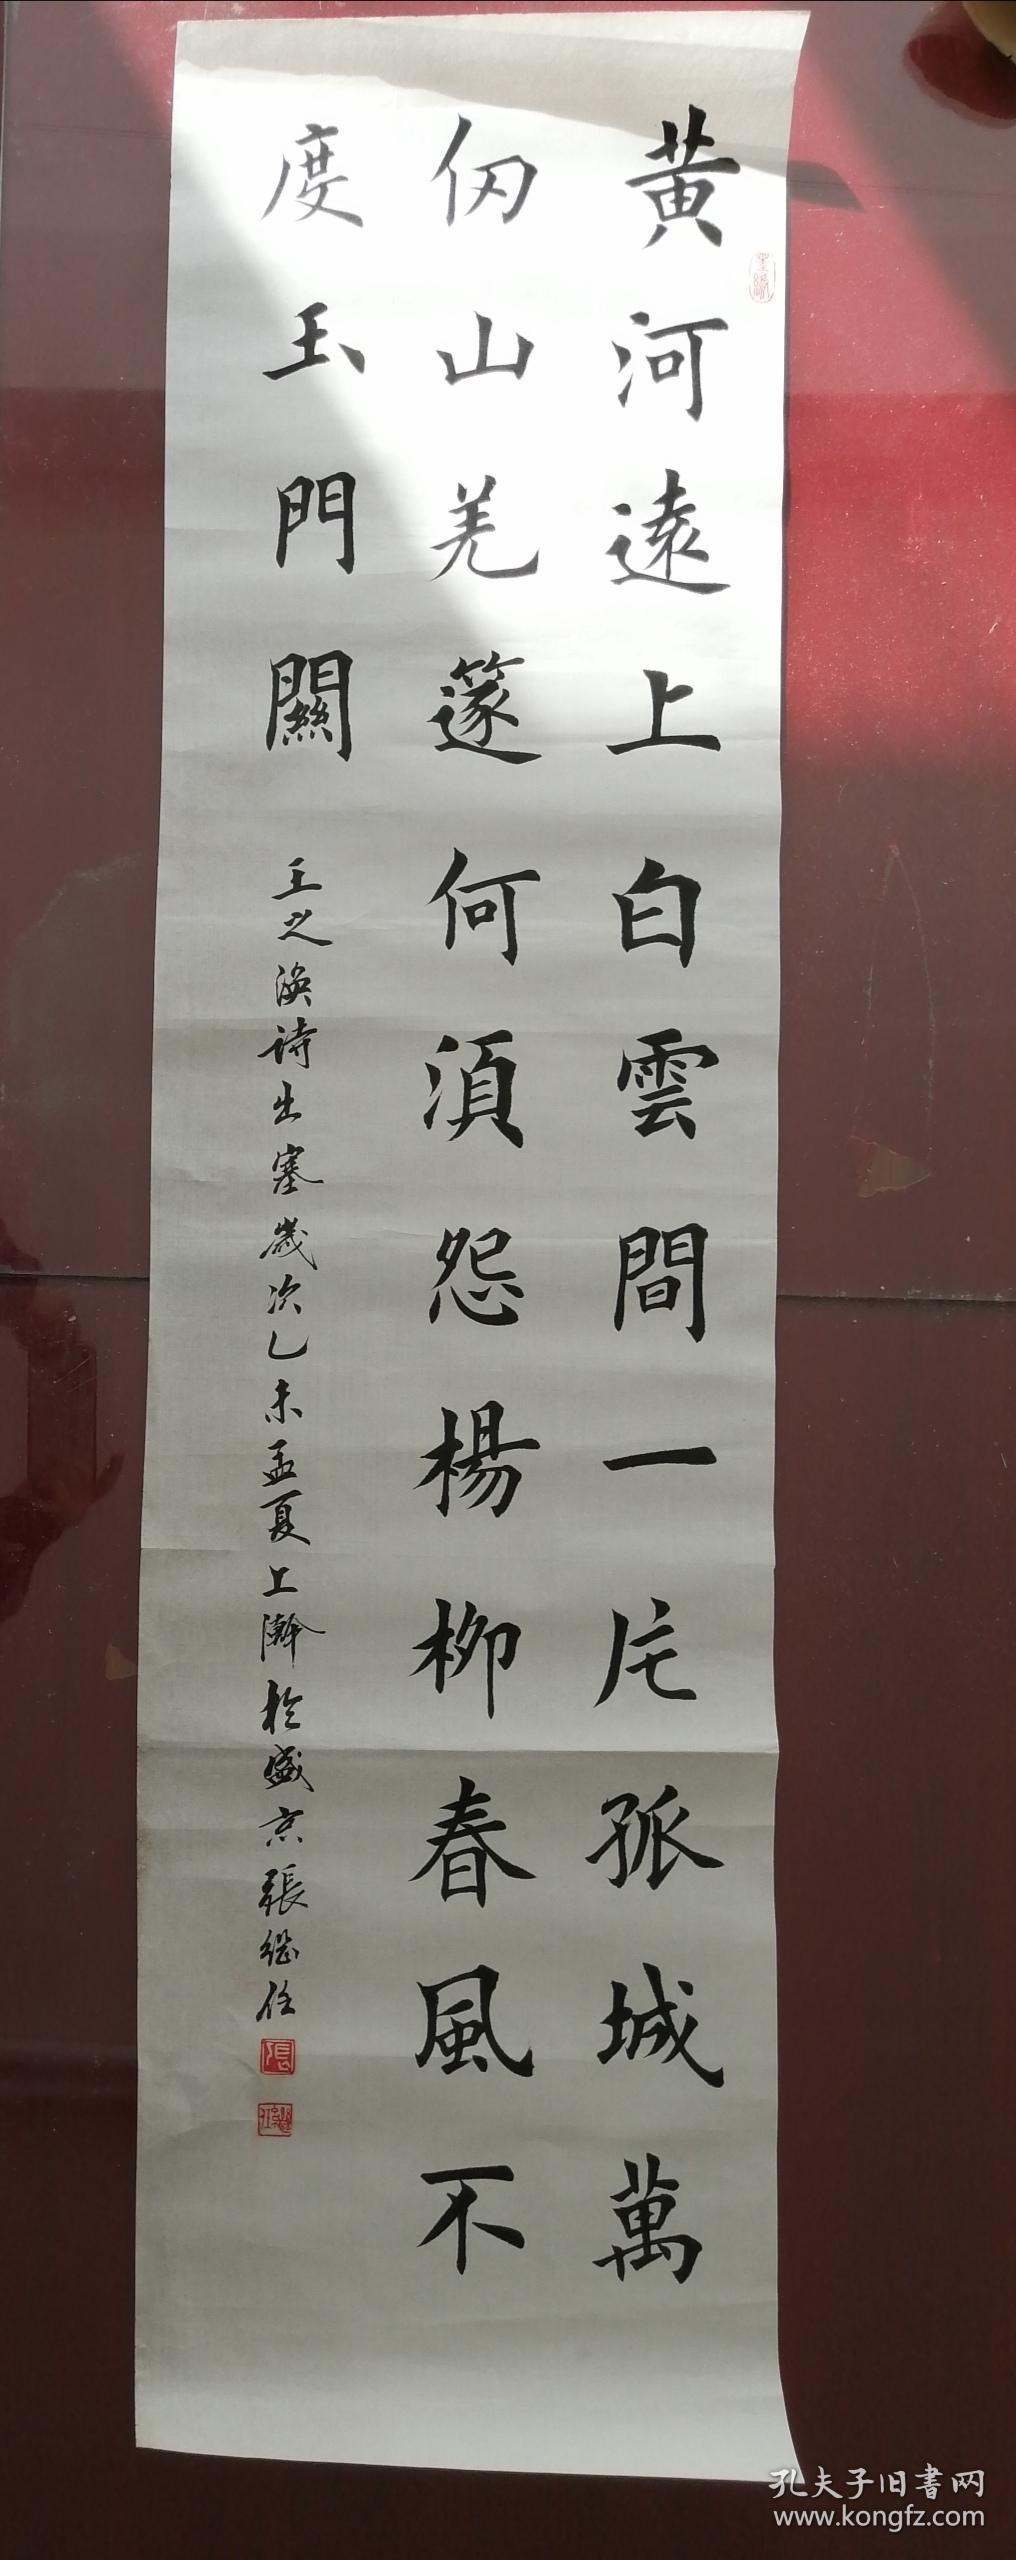 黄河遠上白雲間一片孤城萬
仞山羌篴何須怨楊柳春風不
度玉門關
王之渙诗出塞歲次乙未孟夏上澣於盛京張继任
張
孔夫子旧書网
www.kongfz.com